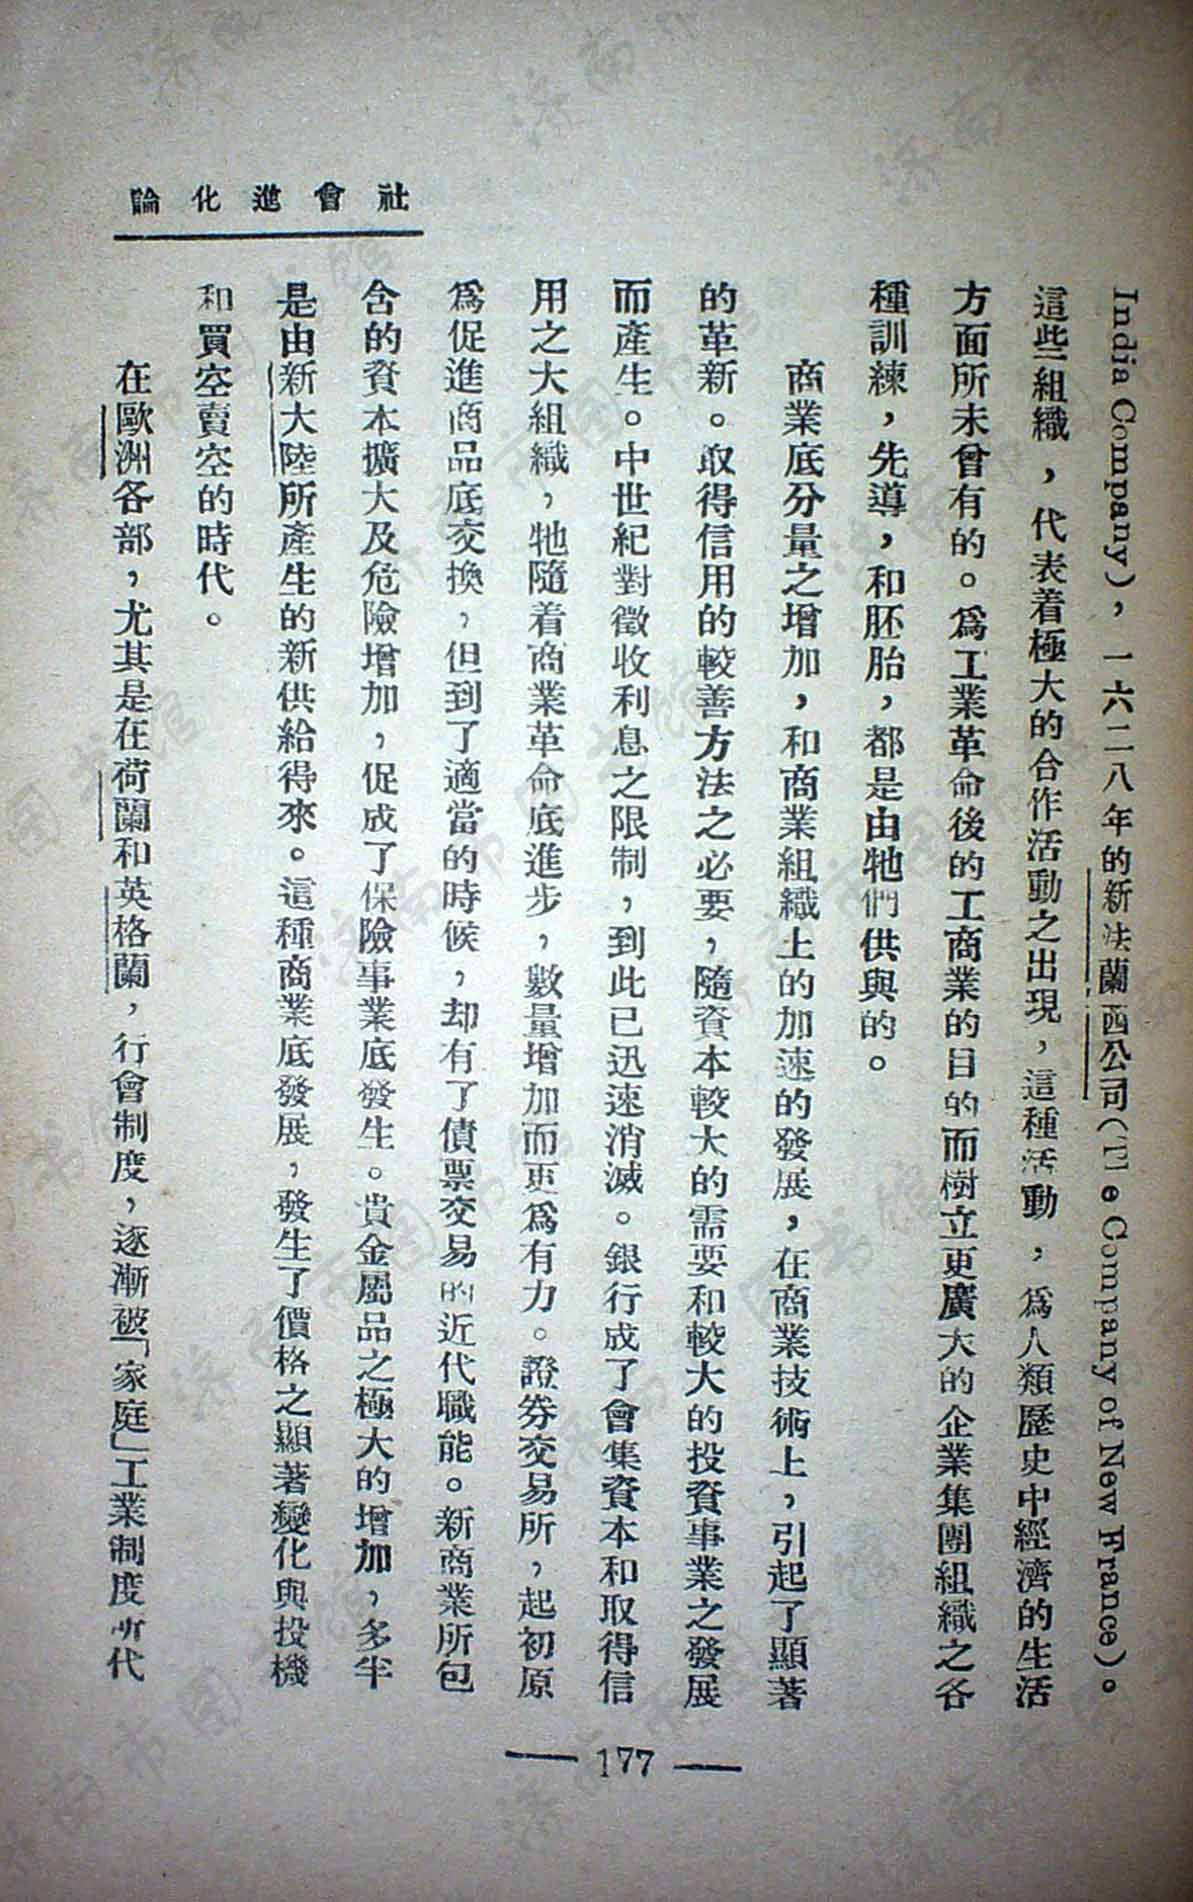 社會進化論
India Company)，一六二八年的新法蘭西公司(The Company of New France)。
這些組織，代表着極大的合作活動之出現，這種活動，爲人類歷史中經濟的生活
方面所未曾有的。爲工業革命後的工商業的目的而樹立更廣大的企業集團組織之各
種訓練，先導，和胚胎，都是由牠們供與的。
商業底分量之增加，和商業組織上的加速的發展，在商業技術上，引起了顯著
的革新。取得信用的較善方法之必要，隨資本較大的需要和較大的投資事業之發展
而產生。中世紀對徵收利息之限制，到此已迅速消滅。銀行成了會集資本和取得信
用之大組織，牠隨着商業革命底進步，數量增加而更爲有力。證券交易所，起初原
爲促進商品底交換，但到了適當的時候，却有了債票交易的近代職能。新商業所包
含的資本擴大及危險增加，促成了保險事業底發生。貴金屬品之極大的增加，多半
是由新大陸所產生的新供給得來。這種商業底發展，發生了價格之顯著變化與投機
和買空賣空的時代。
在歐洲各部，尤其是在荷蘭和英格蘭，行會制度，逐漸被「家庭」工業制度所代
— 177 —
濟南市图书馆